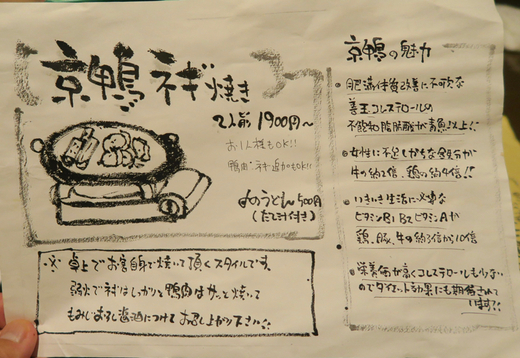 京鴨ネギ焼き
2人前 1900円~
お1人様もOK!!
鴨肉・ネギ追加もOK!!
〆のうどん 500円
(だし汁付き)
※ 卓上でお客自身で焼いて頂くスタイルです。
弱火でネギはしっかりと鴨肉はサッと焼いて
もみじおろし醤油につけてお召し上がり下さい!!
京鴨の魅力
肥満体質改善に不可欠な
善玉コレステロールの
不飽和脂肪酸が青魚以上!!
女性に不足しがちな鉄分が
牛の約2倍、鶏の約4倍!!
いきいき生活に必要な
ビタミンB1 B2 ビタミンAが
鶏、豚、牛の約3倍から10倍
栄養価が高くコレステロールも少ない
のでダイエット効果にも期待されて
います!!